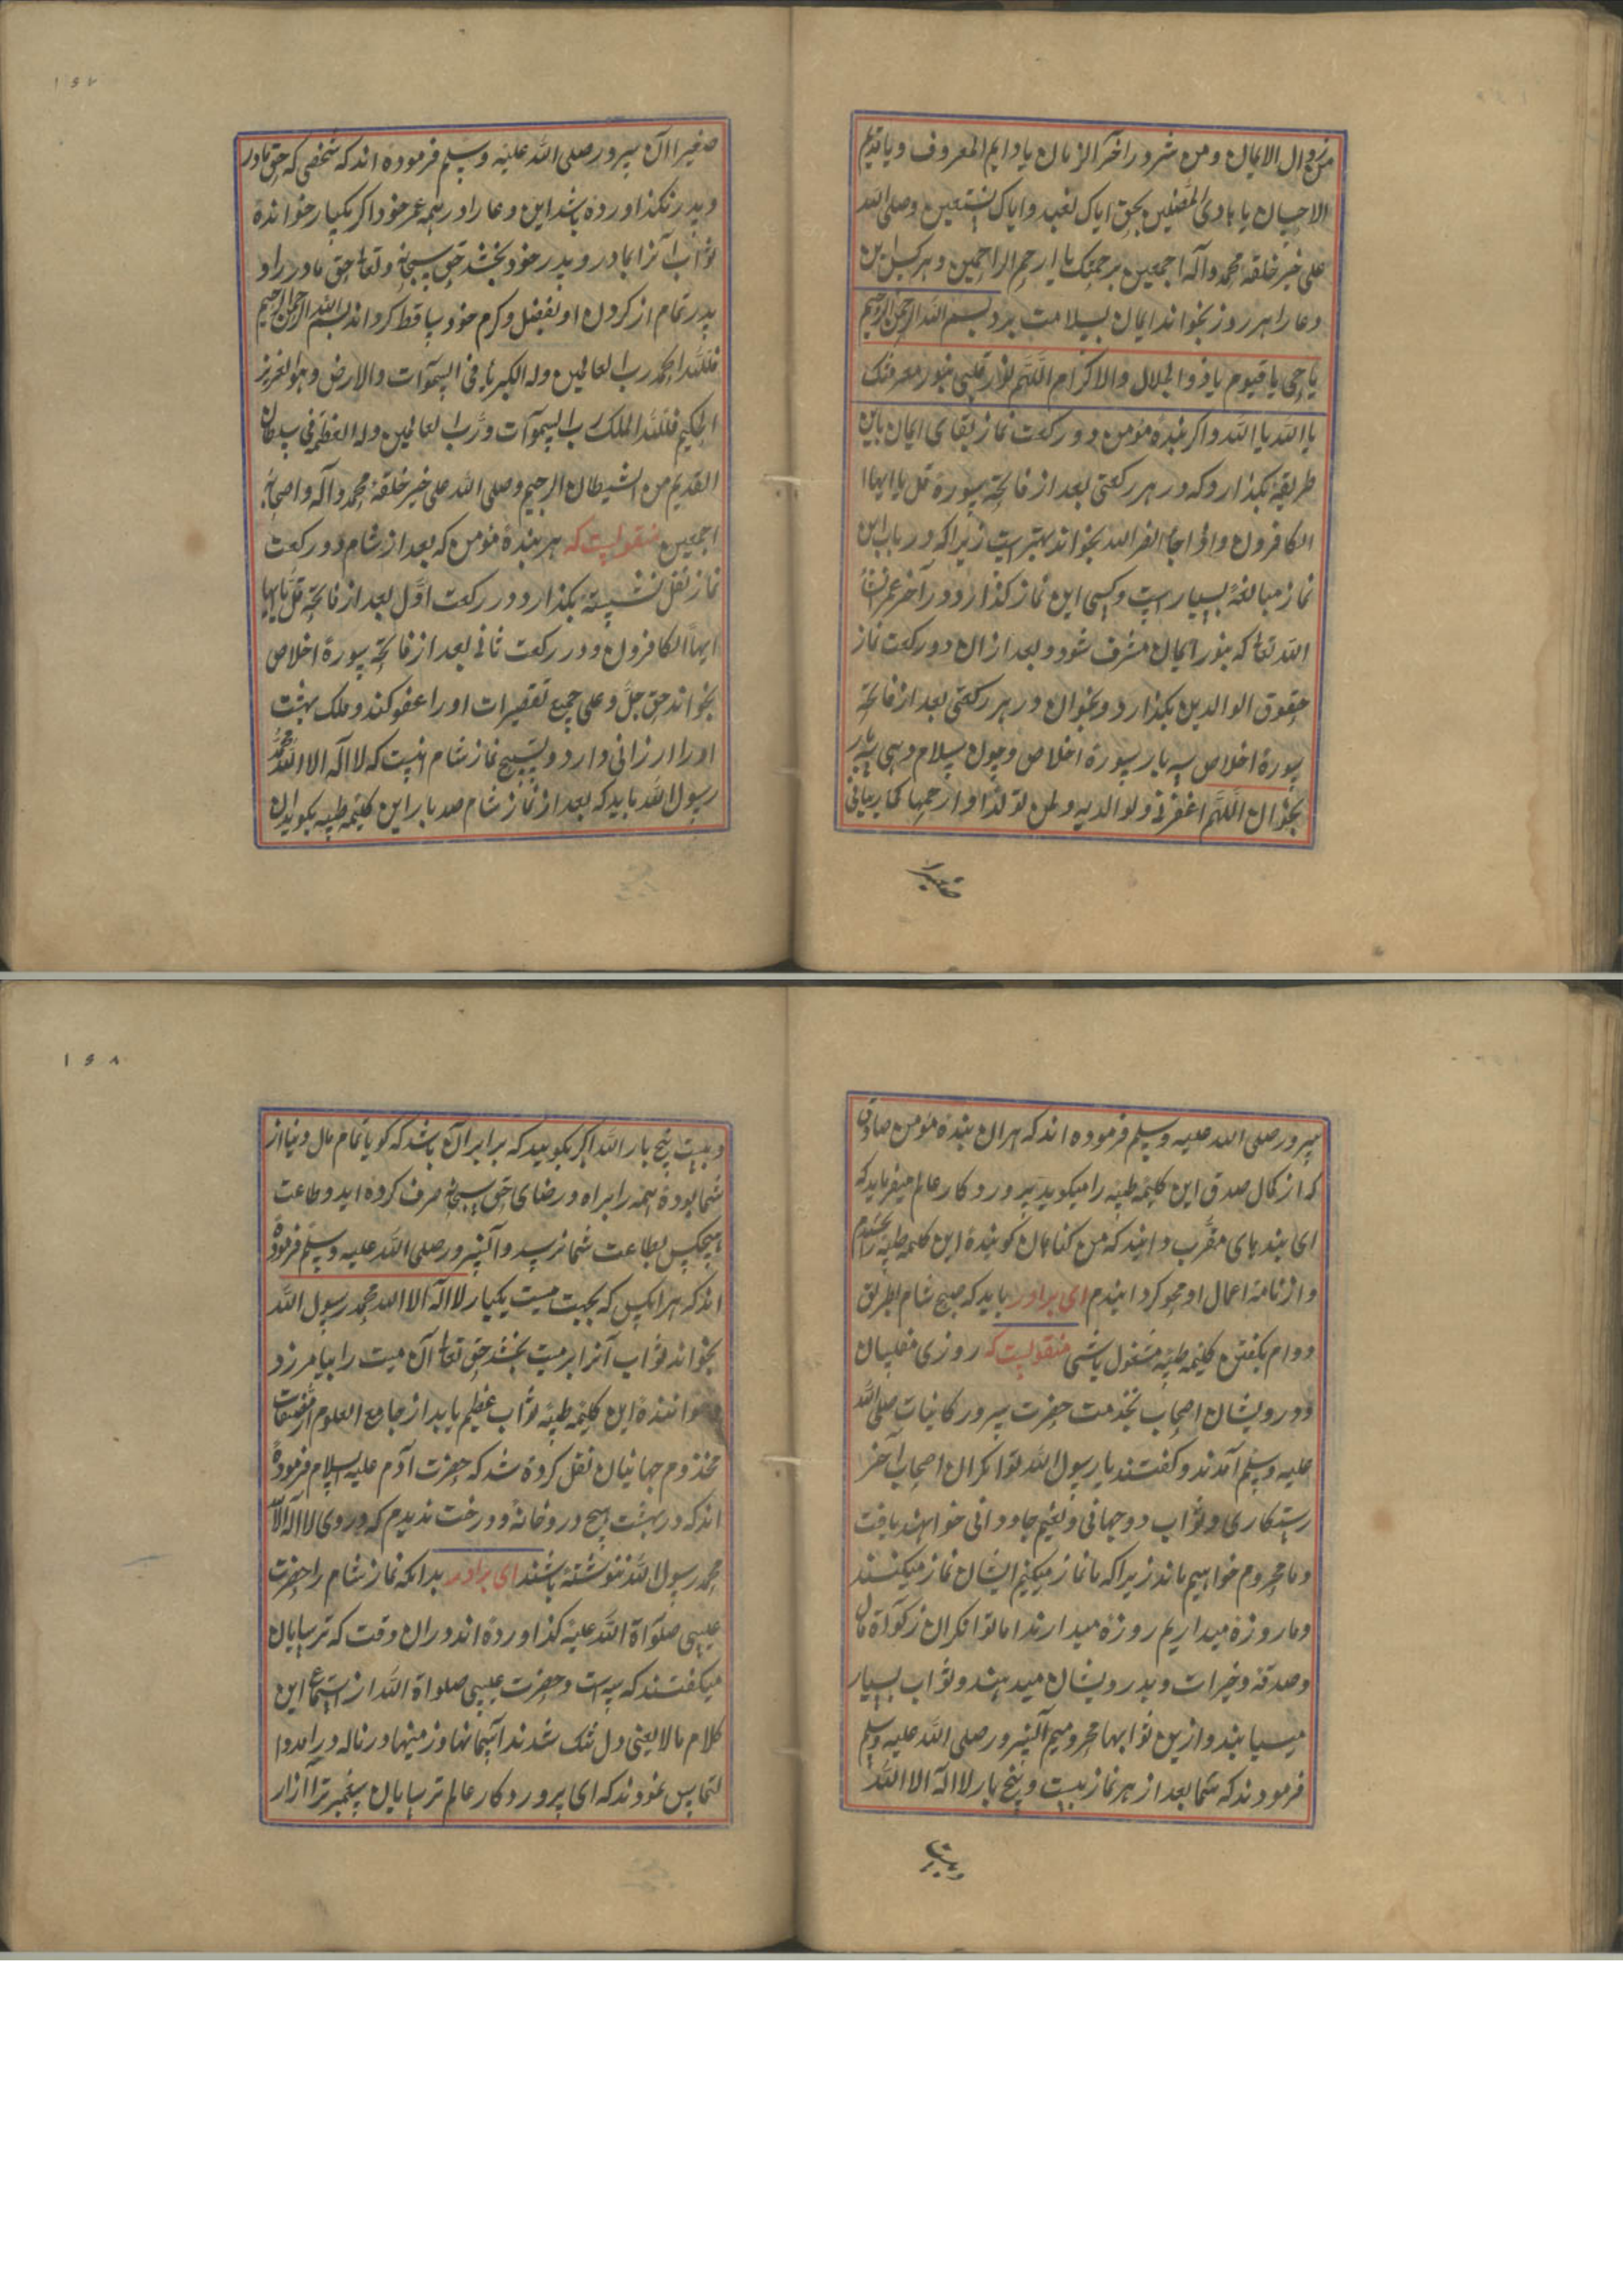 من زوال الایمان ومن شرور اخر الزمان یا دایم المعروف ویا قدیم
الاحسان یا هادی المضلین بحق ایاک نعبد وایاک نستعین وصلی الله
علی خیر خلقه محمد وآله اجمعین برحمتک یا ارحم الراحمین وهر کس این
دعا را هر روز بخواند ایمان بسلامت برد بسم الله الرحمن الرحیم
یا حی یا قیوم یا ذو الجلال والاکرام اللهم نوّر قلبی بنور معرفتک
یا الله یا الله واکر بنده مؤمن دو رکعت نماز بقای ایمان باین
طریقه بکذارد که در هر رکعتی بعد از فاتحه سوره قل یا ایها ا
الکافرون واذا جاء نصر الله بخواند بهتر است زیرا که در باب این
نماز مبالغه بسیار است وکسی این نماز کذارد در آخر عمر انشا
الله تعالی که بنور ایمان مشرف شود وبعد از ان دو رکعت نماز
حقوق الوالدین بکذارد وبخوان در هر رکعتی بعد از فاتحه
سورة اخلاص سه بار سورة اخلاص وچون سلام دهی سه بار
بخوان اللهم اغفرلی ولوالدیه ولمن توالدا وارحمهما کما ربیانی
صغیرا
۱۶۷
صغیرا آن سرور صلی الله علیه وسلم فرموده اند که شخصی که حق مادر
وپدر نکذاورده باشد این دعا را در همه عمر خود اکر یکبار خوانده
ثواب آنرا بمادر وپدر خود بخشد حق سبحانه وتعالی حق مادر را و
پدر تمام از کردن او بفضل وکرم خود ساقط کرداند بسم الله الرحمن الرحیم
فلله الحمد رب العالمین وله الکبریاء فی السموات والارض وهو العزیز
الحکیم فلله الملک رب السموآت ورب العالمین وله العظمه فی سلطان
القدیم من الشیطان الرجیم وصلی الله علی خیر خلقه محمد وآله واصحابه
اجمعین منقولست که هر بندۀ مؤمن که بعد از شام دو رکعت
نماز نفل نشسته بکذارد در رکعت اوّل بعد از فاتحه قل یا ایها
ایها الکافرون ودر رکعت ثانی بعد از فاتحه سورة اخلاص
بخواند حق جل وعلی جمیع تقصیرات اورا عفو کند وملک بهشت
اورا ارزانی دارد وتسبیح نماز شام نیست که لا اله الا الله محمد
رسول الله باید که بعد از نماز شام صد بار این کلمه طیبه بکوید ان
سرور صلی الله علیه وسلم فرموده اند که هران بندۀ مؤمن صادق
که از کمال صدق این کلمه طیبه را میکوید پروردکار عالم میفرماید که
ای بندهای مقرب دانید که من کناهان کویندۀ این کلمه طیبه را بخشیدم
واز نامه اعمال او محو کردانیدم ای برادر باید که صبح شام بطریق
دوام بکفتن کلمه طیبه مشغول باشی منقولست که روزی مفلسان
ودرویشان اصحاب بخدمت حضرت سرور کاینات صلی الله
علیه وسلم آمدند وکفتند یا رسول الله توانکران اصحاب آخر
رستکاری وثواب دو جهانی ونعیم جاودانی خواهند یافت
وما محروم خواهیم ماند زیرا که ما نماز میکنیم ایشان نماز میکنند
وما روزه میداریم روزه میدارند اما توانکران زکوة مال
وصدقه وخیرات وبدرویشان میدهند وثواب بسیار
میسیابند وازین ثوابها محرومیم آنسرور صلی الله علیه وسلم
فرمودند که شما بعد از هر نماز بیست وپنج بار لا اله الا الله
وبیست
۱۶۸
وبیست پنج بار الله اکبر بکویید که برابر آن باشد که کویا تمام مال دنیا از
شما بوده همه را براه ورضای حق سبحانه صرف کرده اید وطاعت
هیچکس بطاعت شما نرسد وآنسرور صلی الله علیه وسلم فرموده
اند که هر انکس که بجهت میت یکبار لا اله الا الله محمد رسول الله
بخواند ثواب آنرا بر میت بخشد حق تعالی آن میت را بیامرزد
وخوانندۀ این کلمه طیبه ثواب عظیم یابد از جامع العلوم
مخدوم جهانیان نقل کرده شد که حضرت آدم علیه السلام فرموده
اند که در بهشت هیچ در وخانه ودرخت ندیدم که در وی لا اله الا الله
محمد رسول الله ننوشته باشند ای برادر بدانکه نماز شام را حضرت
عیسی صلواة الله علیه کذاورده اند دران وقت که ترسایان
میکفتند که سه است وحضرت عیسی صلواة الله از استماع این
کلام مالایعنی دل تنک شدند آسمانها وزمینها در ناله درامد وا
لتماس نمودند که ای پروردکار عالم ترسایان پیغمبر ترا آزار